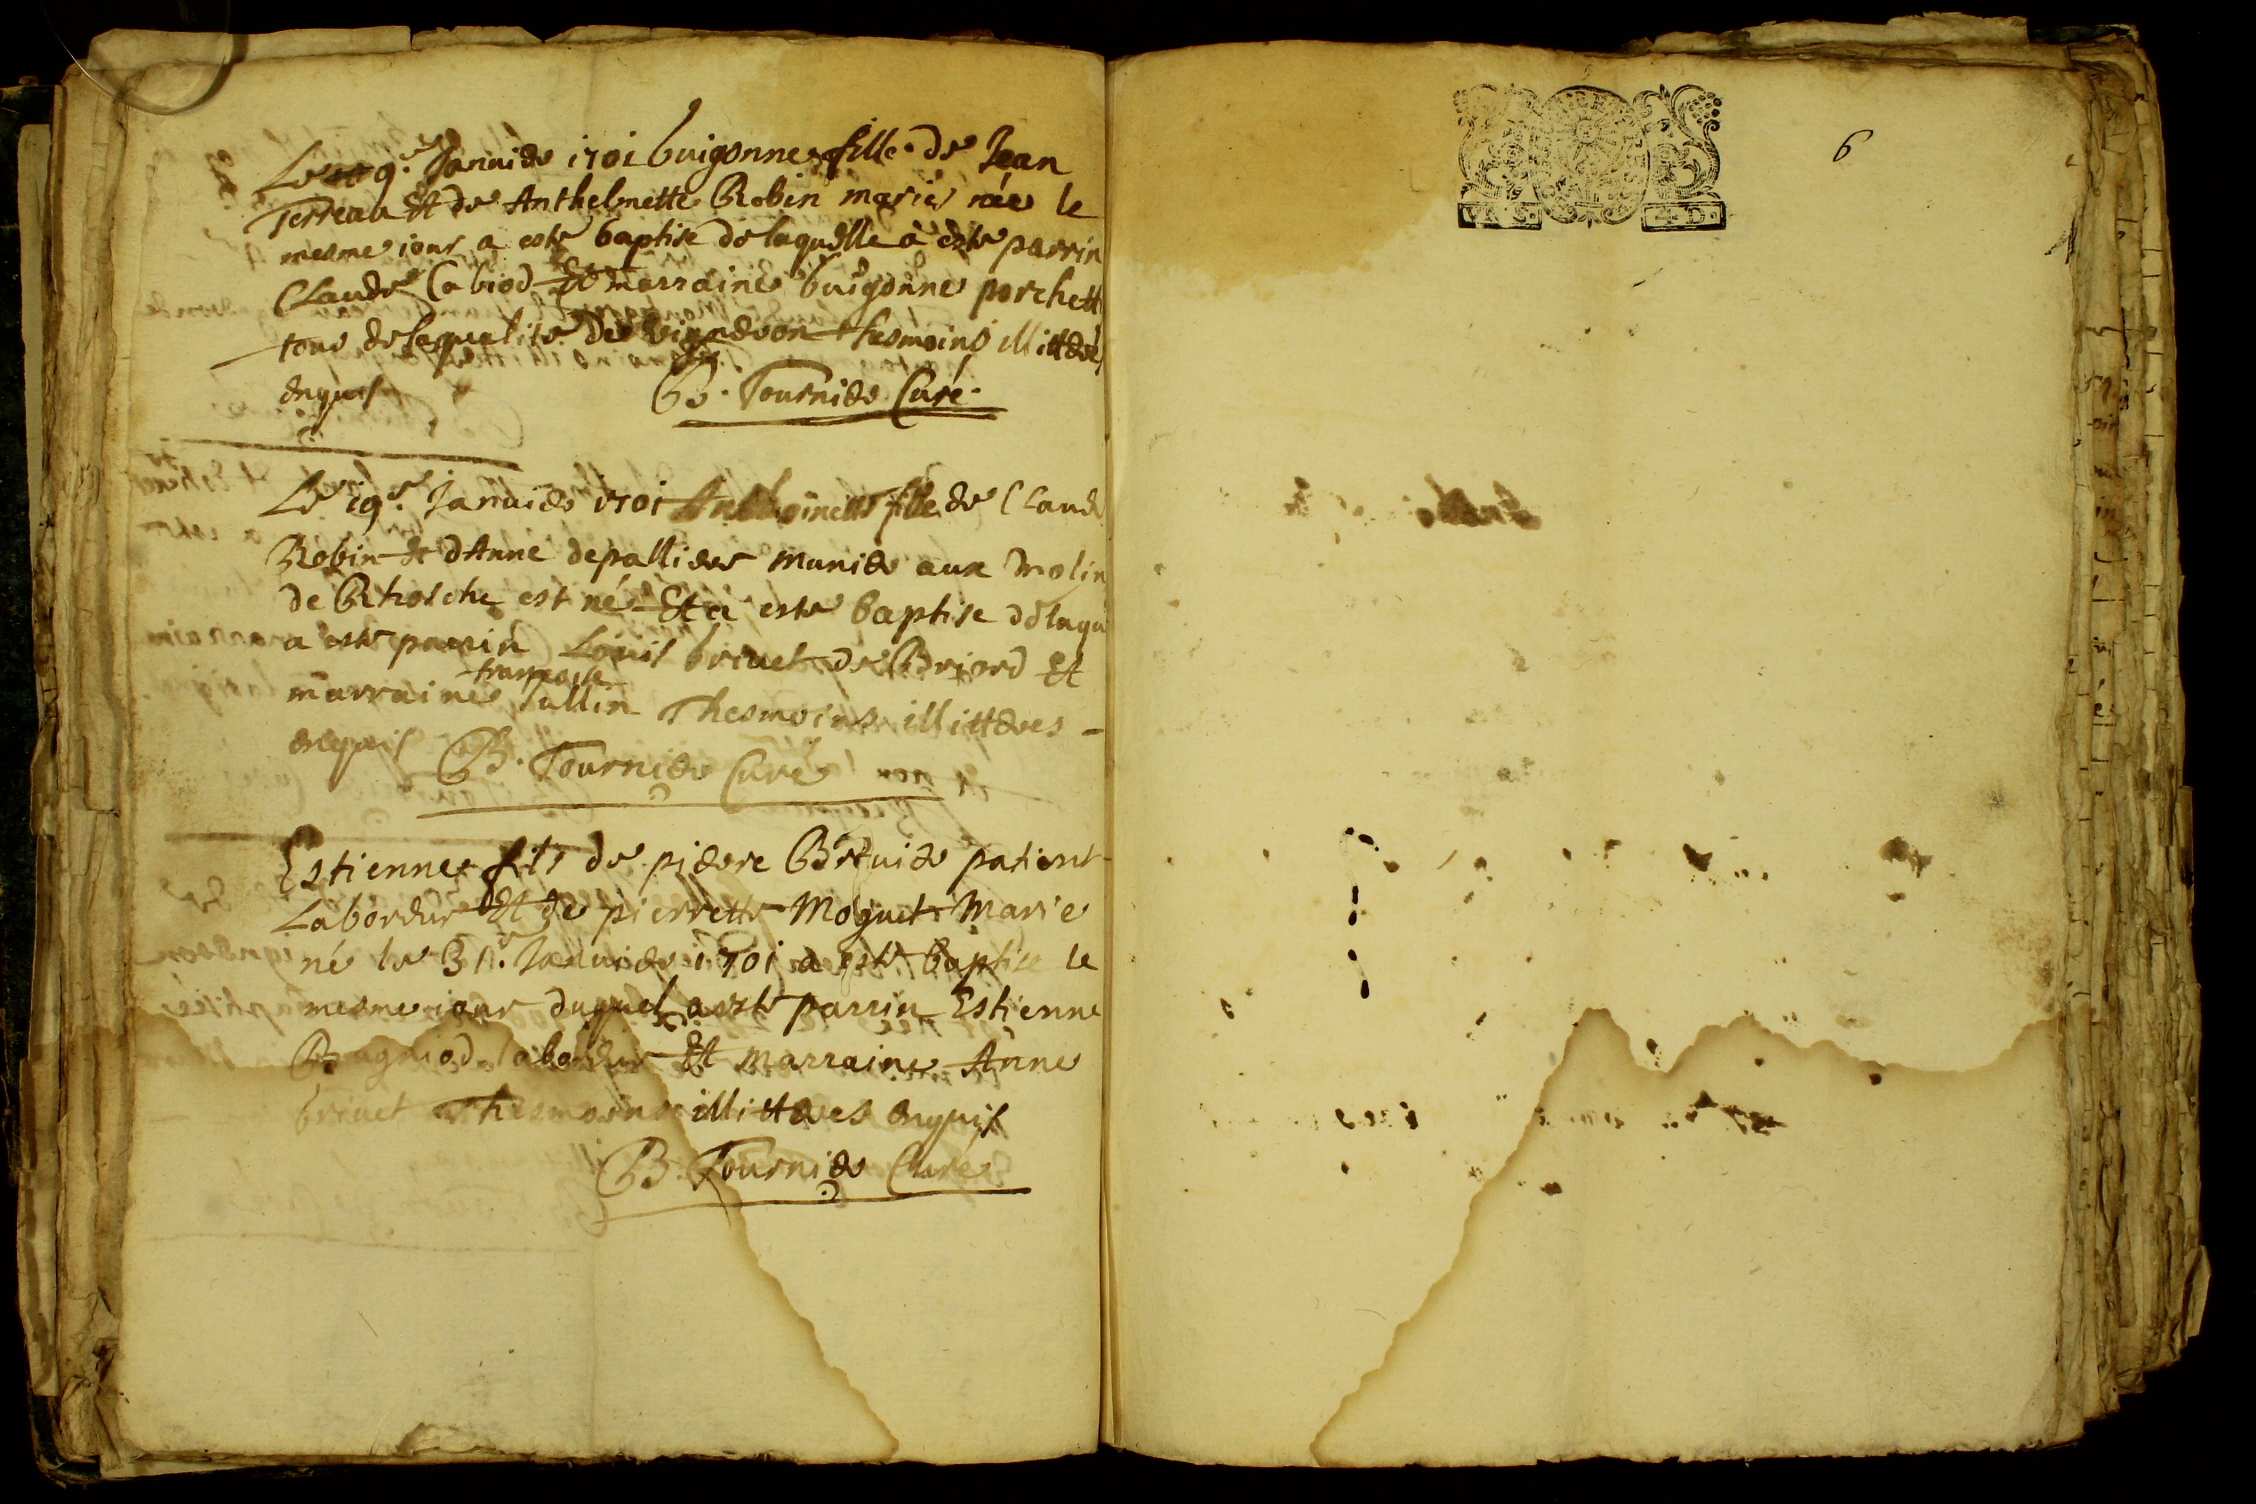 Le 9.e Januier 1701 buigonne fille de Jean
Terreau Et de Anthelmette Robin mariés née le
mesme iour a este baptise de laquelle à este parrin
Claude Cabiod Et marraine buigonne porchett
tous de la qualite de vigneron thesmoins illitterés
enquis
B. Tournier Curé
Le 19.e Januier 1701 Anthoinette fille de Claude
Robin et d'Anne depallier munier aux Molin
de Rhosche est né Et a este baptise de laqu
a este parrin Louis briuet de Briord Et
françoise
marraine Tullin Thesmoins illitteres
enquis
B. Tournier Curé
Estienne fils de pierre Bretuier patient
Laboreur Et de pierrette Moguet Marie
né le 31.e Januier 1701 a este baptise le
mesme iour duquel a este parrin Estienne
Bugniod laboreur Et marraine Anne
briuet Thesmoins illitteres enquis
B. Tournier Curé
6